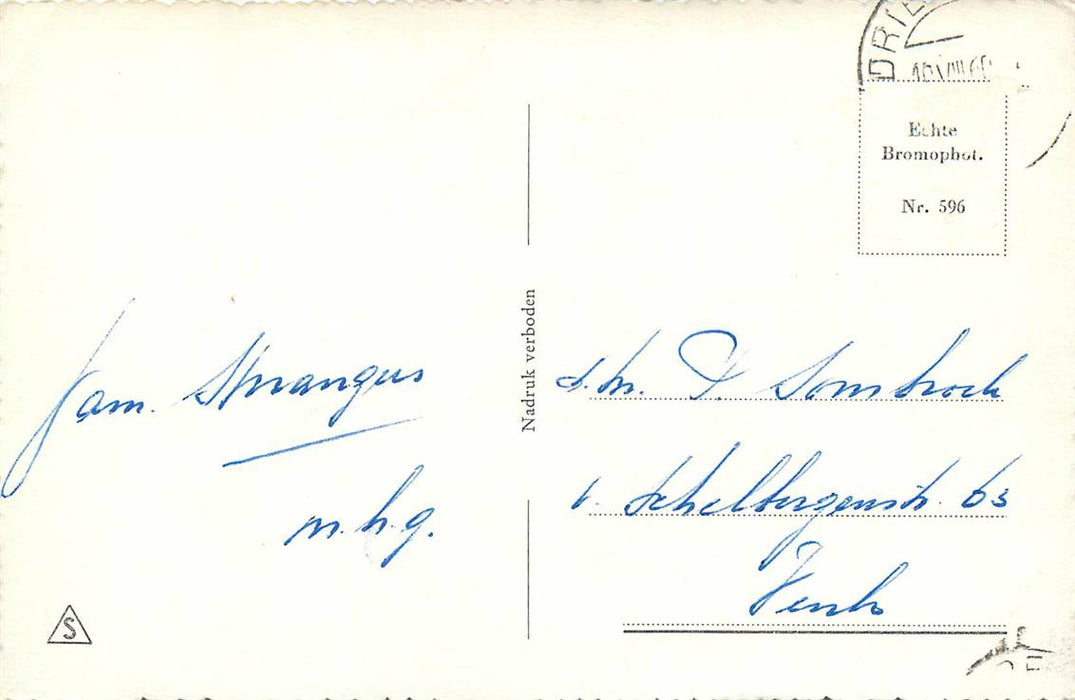 fam. Strangus
m.h.g.
S
Nadruk verboden
DRIE
Echte
Bromophot.
Nr. 596
d. hr. P. Sombroek
v. Schelbergenstr. 63
Venlo